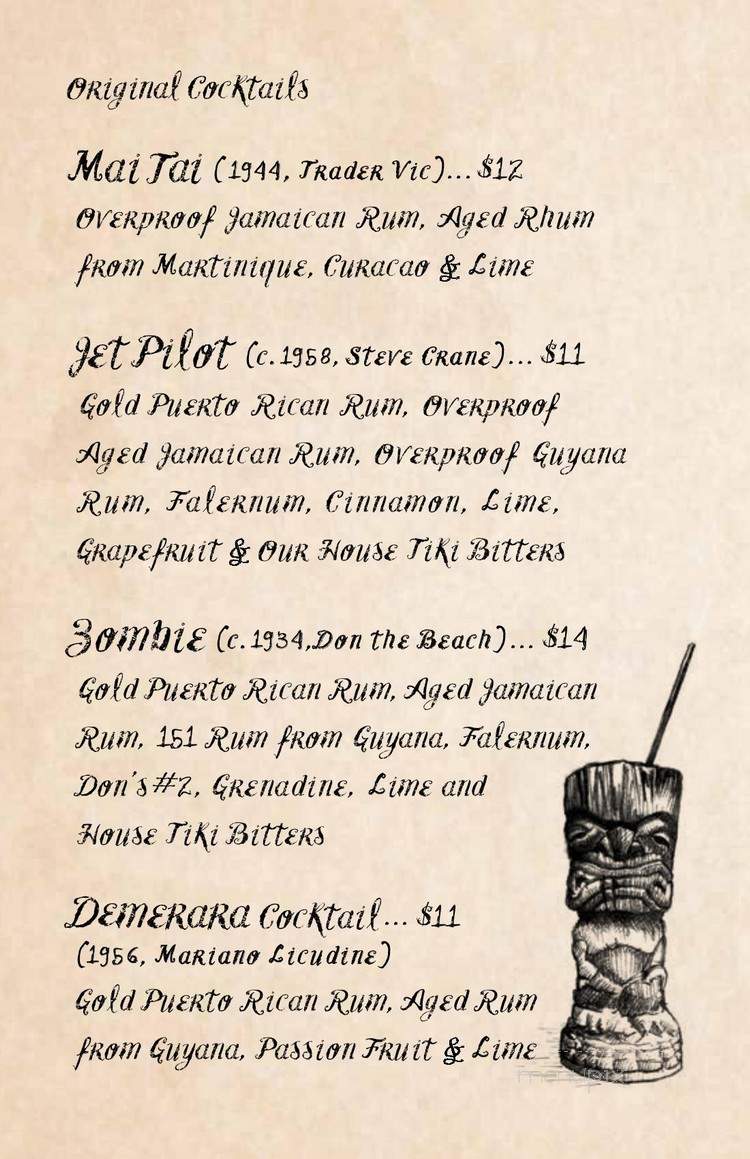 Original Cocktails
Mai Tai (1944, Trader Vic)... $12
Overproof Jamaican Rum, Aged Rhum
from Martinique, Curacao & Lime
Jet Pilot (c. 1958, Steve Crane)... $11
Gold Puerto Rican Rum, Overproof
Aged Jamaican Rum, Overproof Guyana
Rum, Falernum, Cinnamon, Lime,
Grapefruit & Our House Tiki Bitters
Zombie (c. 1934,Don the Beach)... $14
Gold Puerto Rican Rum, Aged Jamaican
Rum, 151 Rum from Guyana, Falernum,
Don's #2, Grenadine, Lime and
House Tiki Bitters
Demerara Cocktail... $11
(1956, Mariano Licudine)
Gold Puerto Rican Rum, Aged Rum
from Guyana, Passion Fruit & Lime